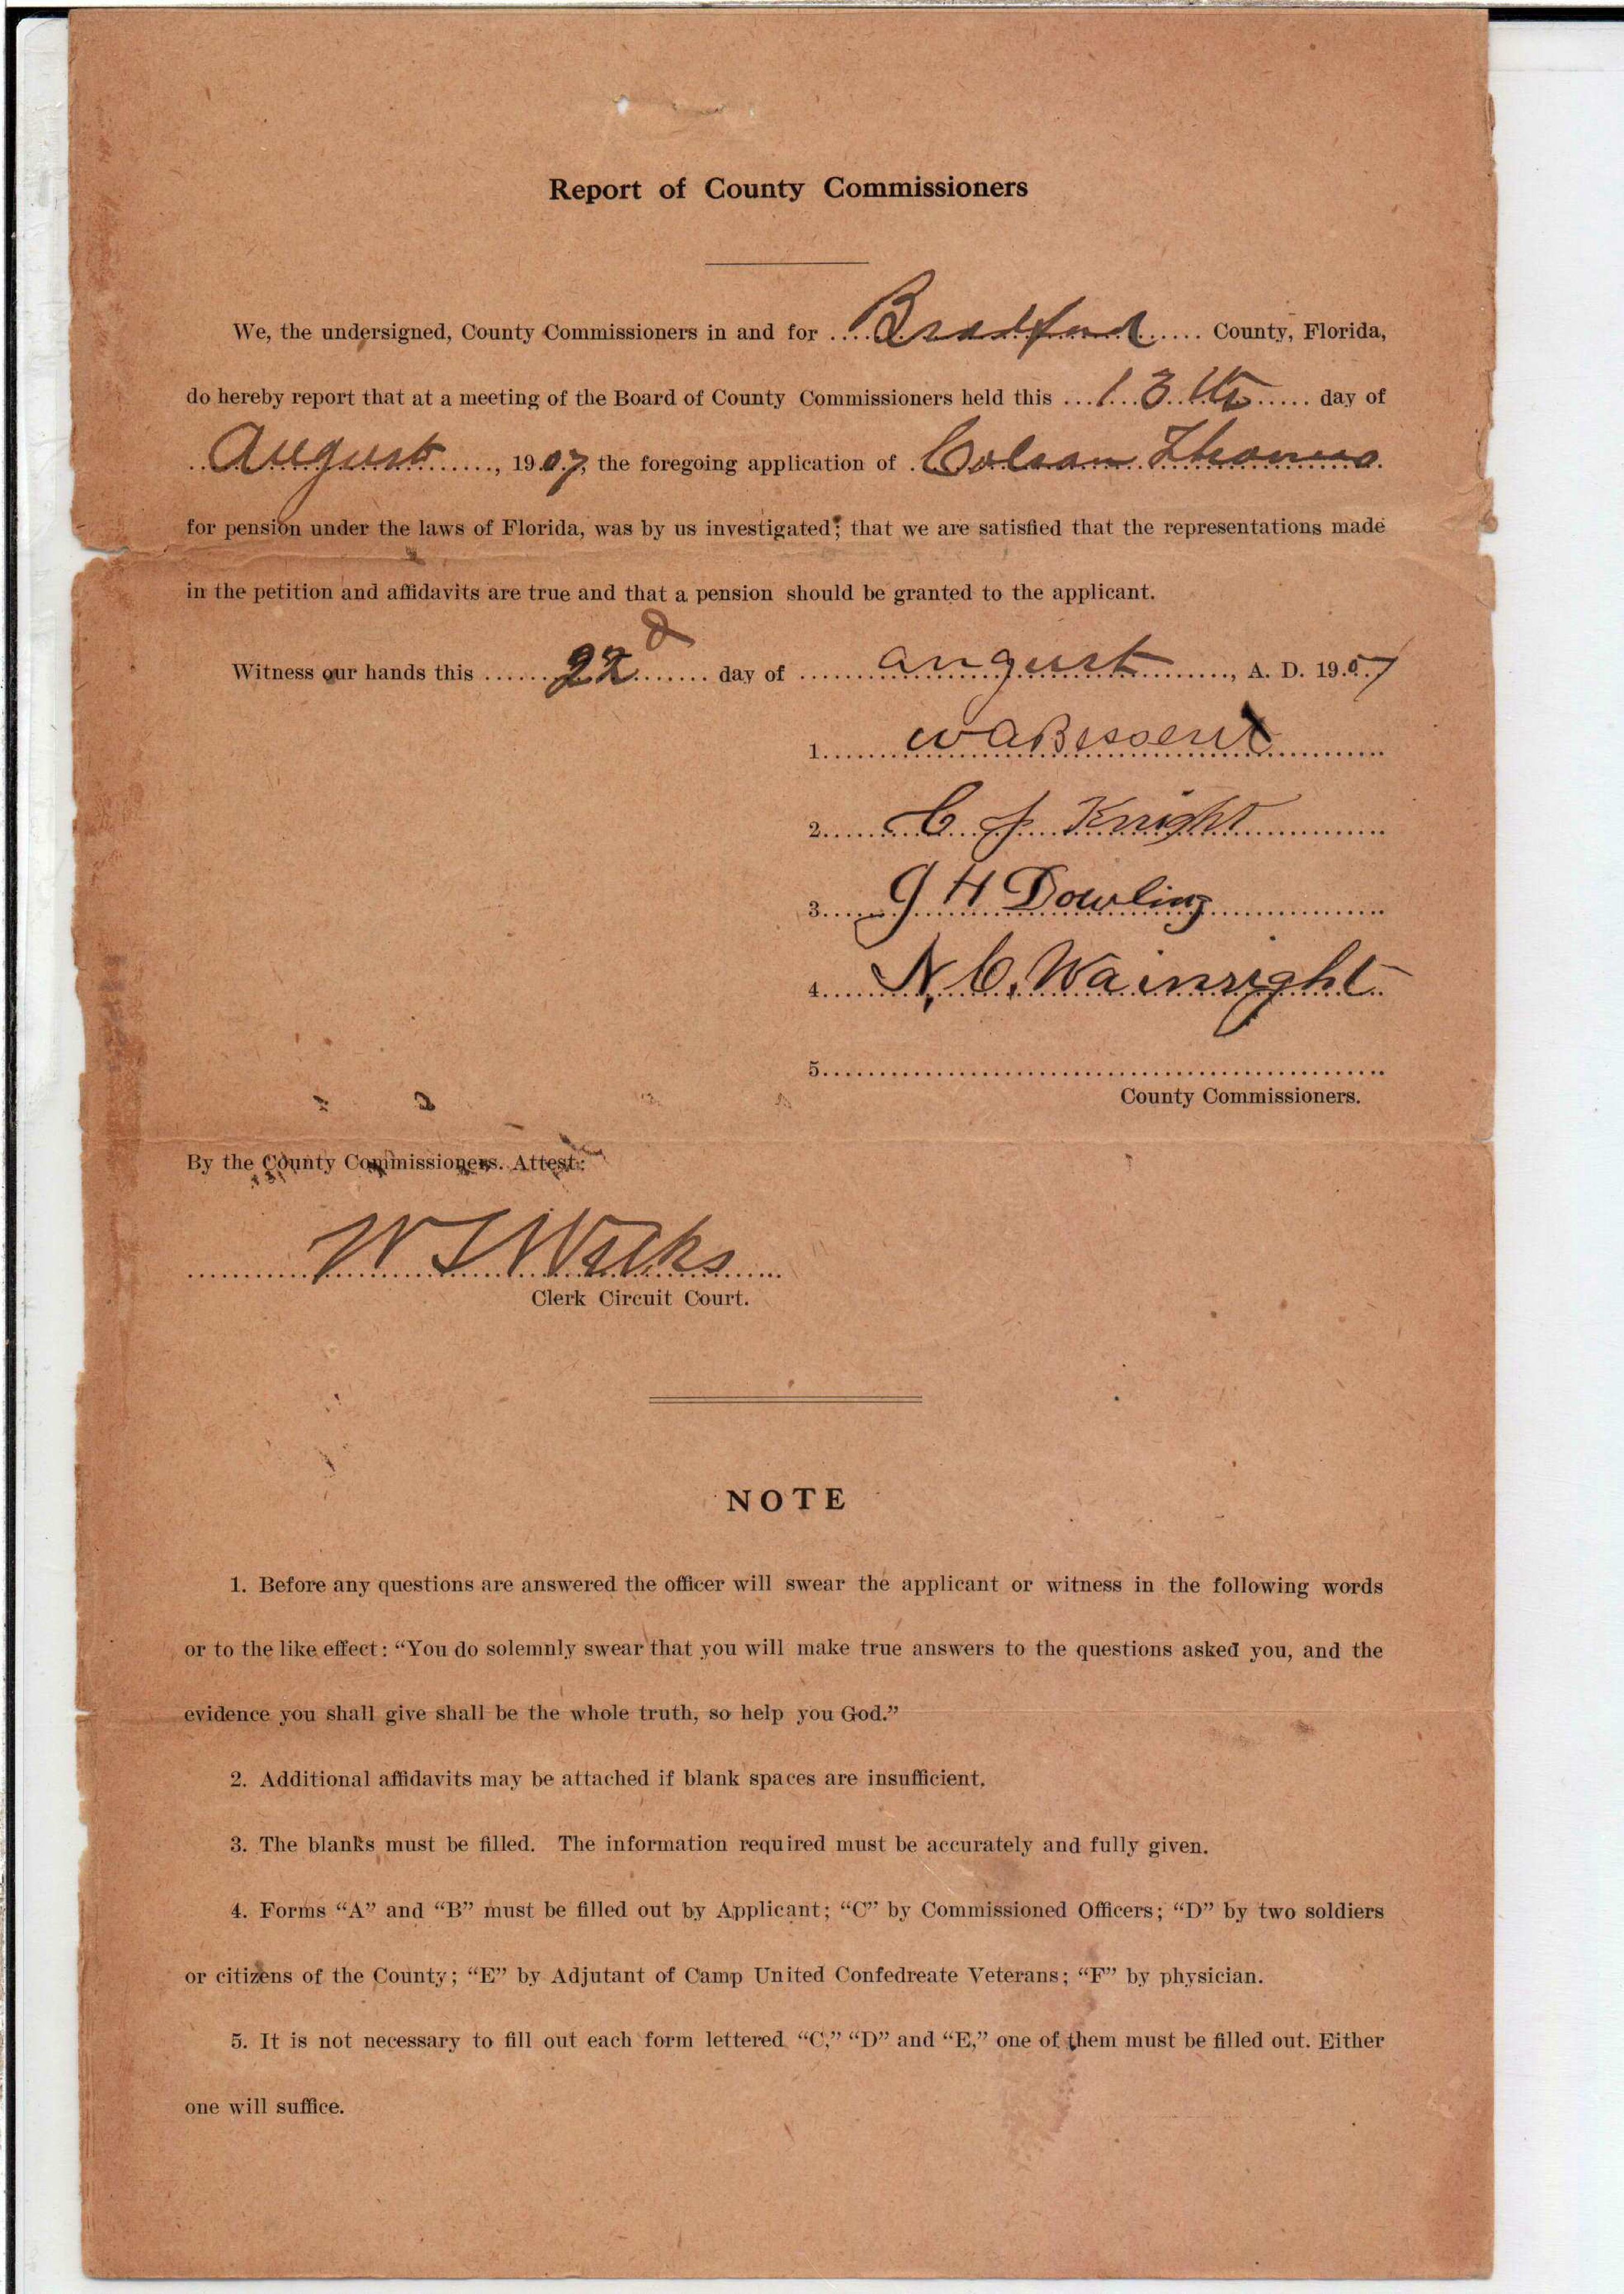 Report of County Commissioners
We, the undersigned, County Commissioners in and for Bradford County, Florida,
do hereby report that at a meeting of the Board of County Commissioners held this 13th day of
August, 1907, the foregoing application of Colson Thomas
for pension under the laws of Florida, was by us investigated; that we are satisfied that the representations made
in the petition and affidavits are true and that a pension should be granted to the applicant.
Witness our hands this 22d day of august, A. D. 1907
1. W A Bessent
2. C J Knight
3. G H Dowling
4. N. C. Wainright
5.
County Commissioners.
By the County Commissioners. Attest:
W T Weeks
Clerk Circuit Court.
NOTE
1. Before any questions are answered the officer will swear the applicant or witness in the following words
or to the like effect: “You do solemnly swear that you will make true answers to the questions asked you, and the
evidence you shall give shall be the whole truth, so help you God.”
2. Additional affidavits may be attached if blank spaces are insufficient.
3. The blanks must be filled. The information required must be accurately and fully given.
4. Forms “A” and “B” must be filled out by Applicant; “C” by Commissioned Officers; “D” by two soldiers
or citizens of the County; “E” by Adjutant of Camp United Confedreate Veterans; “F” by physician.
5. It is not necessary to fill out each form lettered “C,” “D” and “E,” one of them must be filled out. Either
one will suffice.